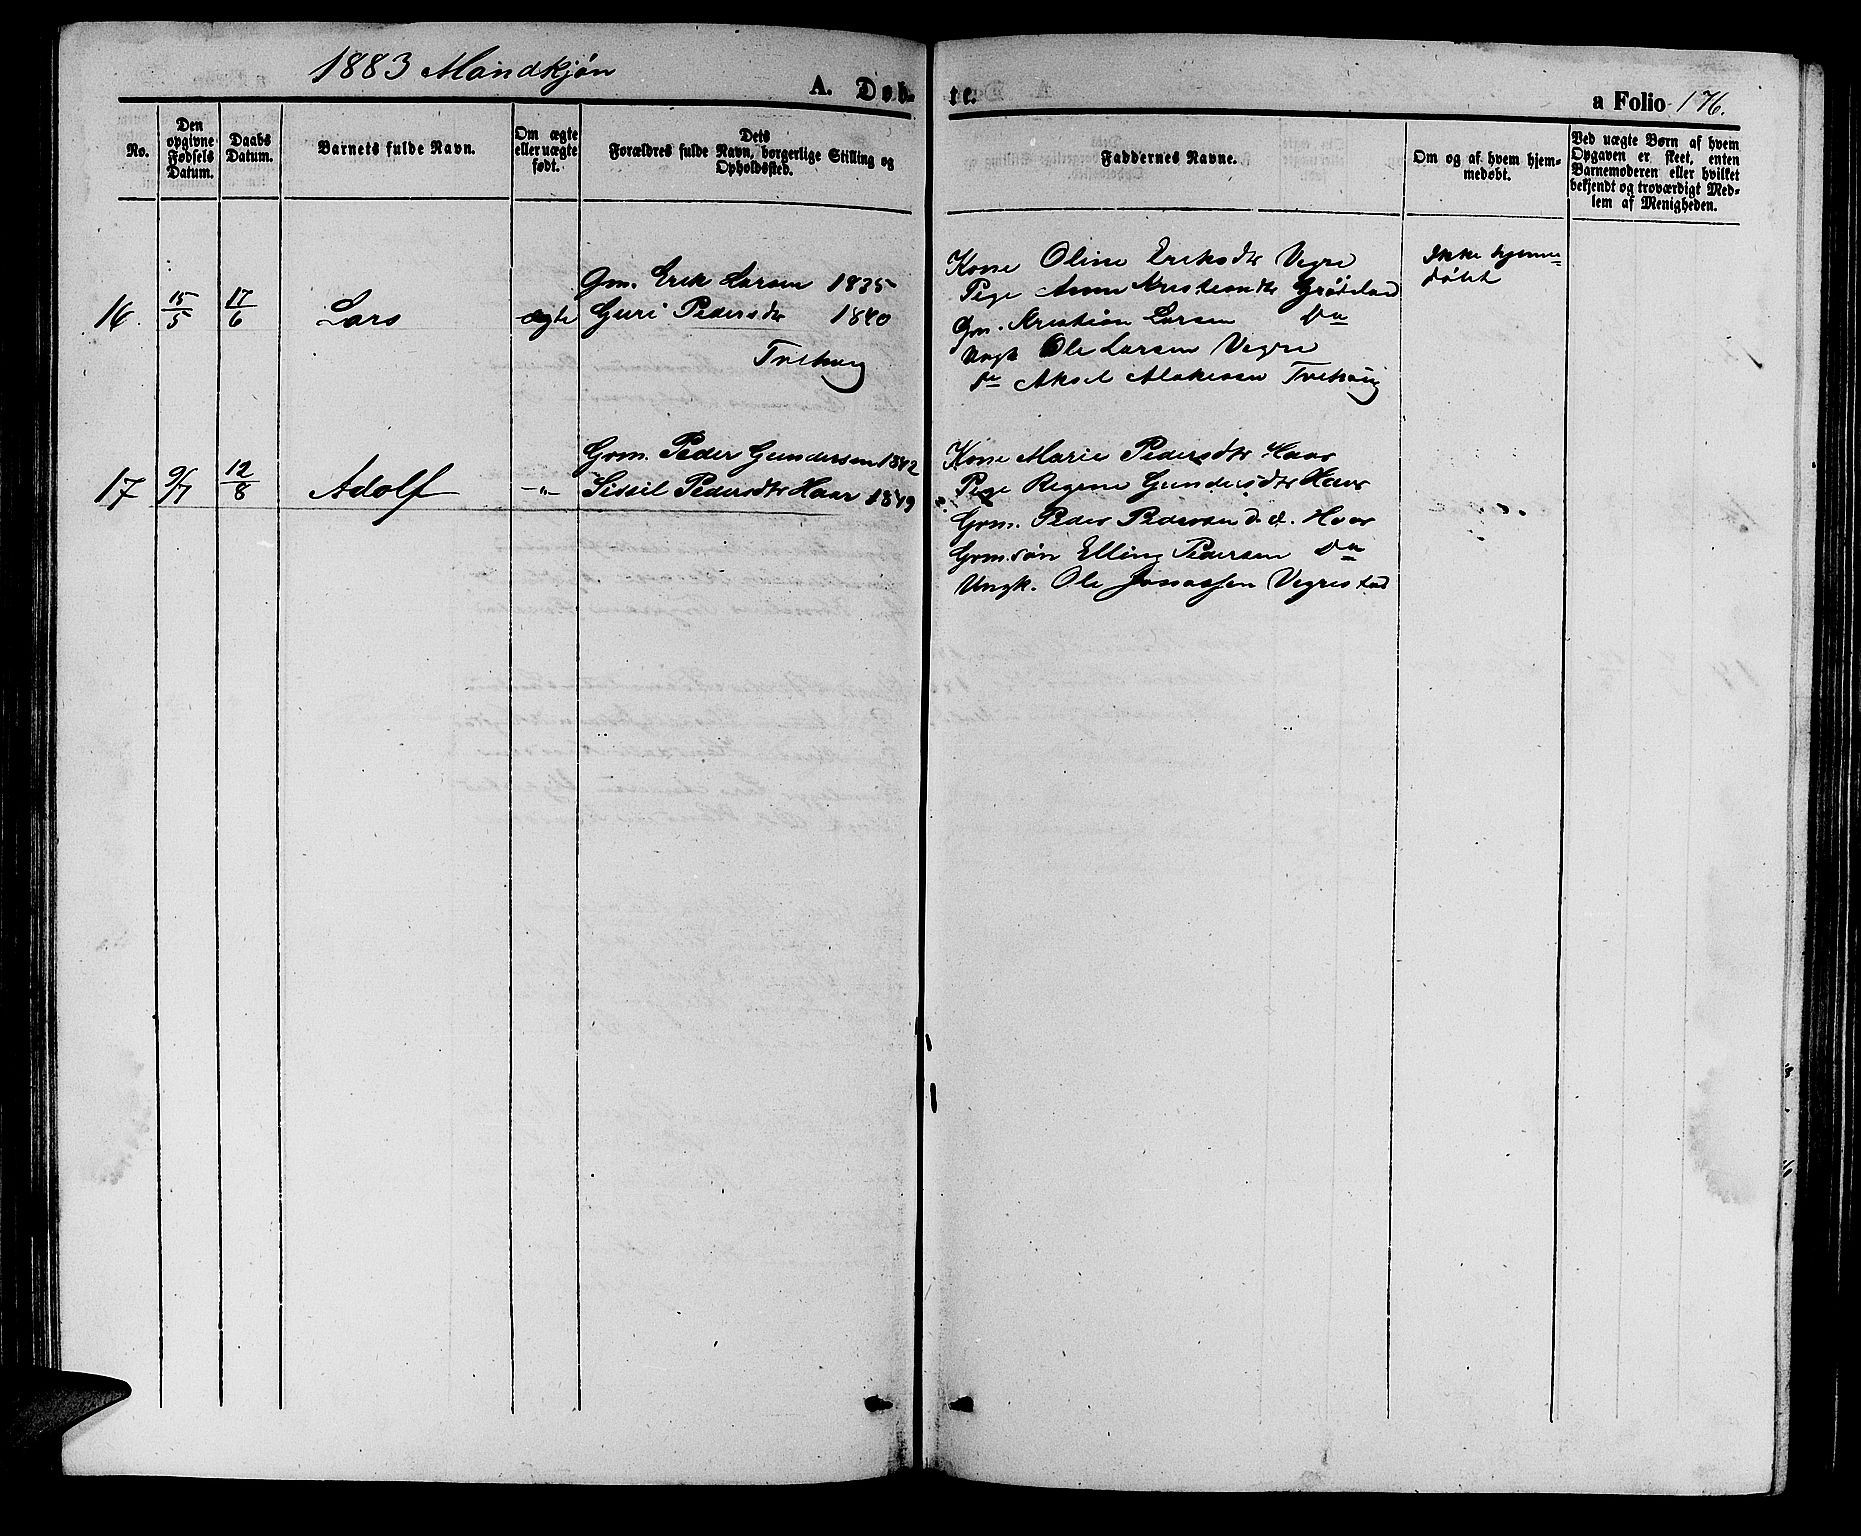 1883 Mandkjøn
A. Døb-
te.
a Folio 176.
No.
Den opgivne Fødsels Datum.
Daabs Datum.
Barnets fulde Navn.
Om ægte eller uægte født.
Dets Forældres fulde Navn, borgerlige Stilling og Opholdssted.
Faddernes Navne.
Om og af hvem hjem-
medøbt.
Ved uægte Børn af hvem
Opgaven er skeet, enten
Barnemoderen eller hvilket
bekjendt og troværdigt Med-
lem af Menigheden.
16. 15/5 17/6 Lars ægte
Gm. Erik Larsen 1835
Guri Pedersdtr 1840
Tvihaug
Kone Oline Eriksdtr Vegre
Pige Anna Kristiansdtr Grødeland
Gm. Kristian Larsen Do
Ungk Ole Larsen Vegre
do Aksel Tvihoug
Ikke hjemme-
døbt
17 9/7 12/8 Adolf -"-
Grm. Peder Gundersen 1842
Sissil Pedersdtr Haar 1849
Kone Marie Pedersdtr Haar
Pige Regine Gundersdtr Haar
Grm. Peder Pedersen d. æ. Haar
Grm.søn Elling Pedersen Do
Ungk. Ole Jonassen Vegrestad